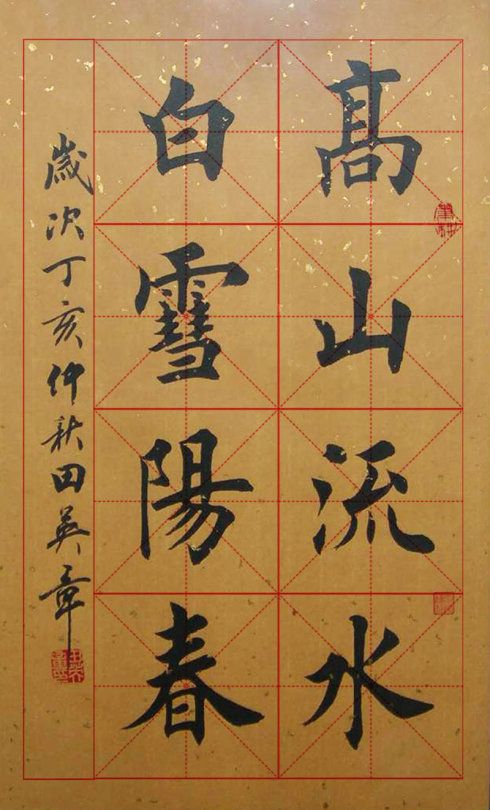 髙山流水
白雪陽春
歲次丁亥仲秋田英章